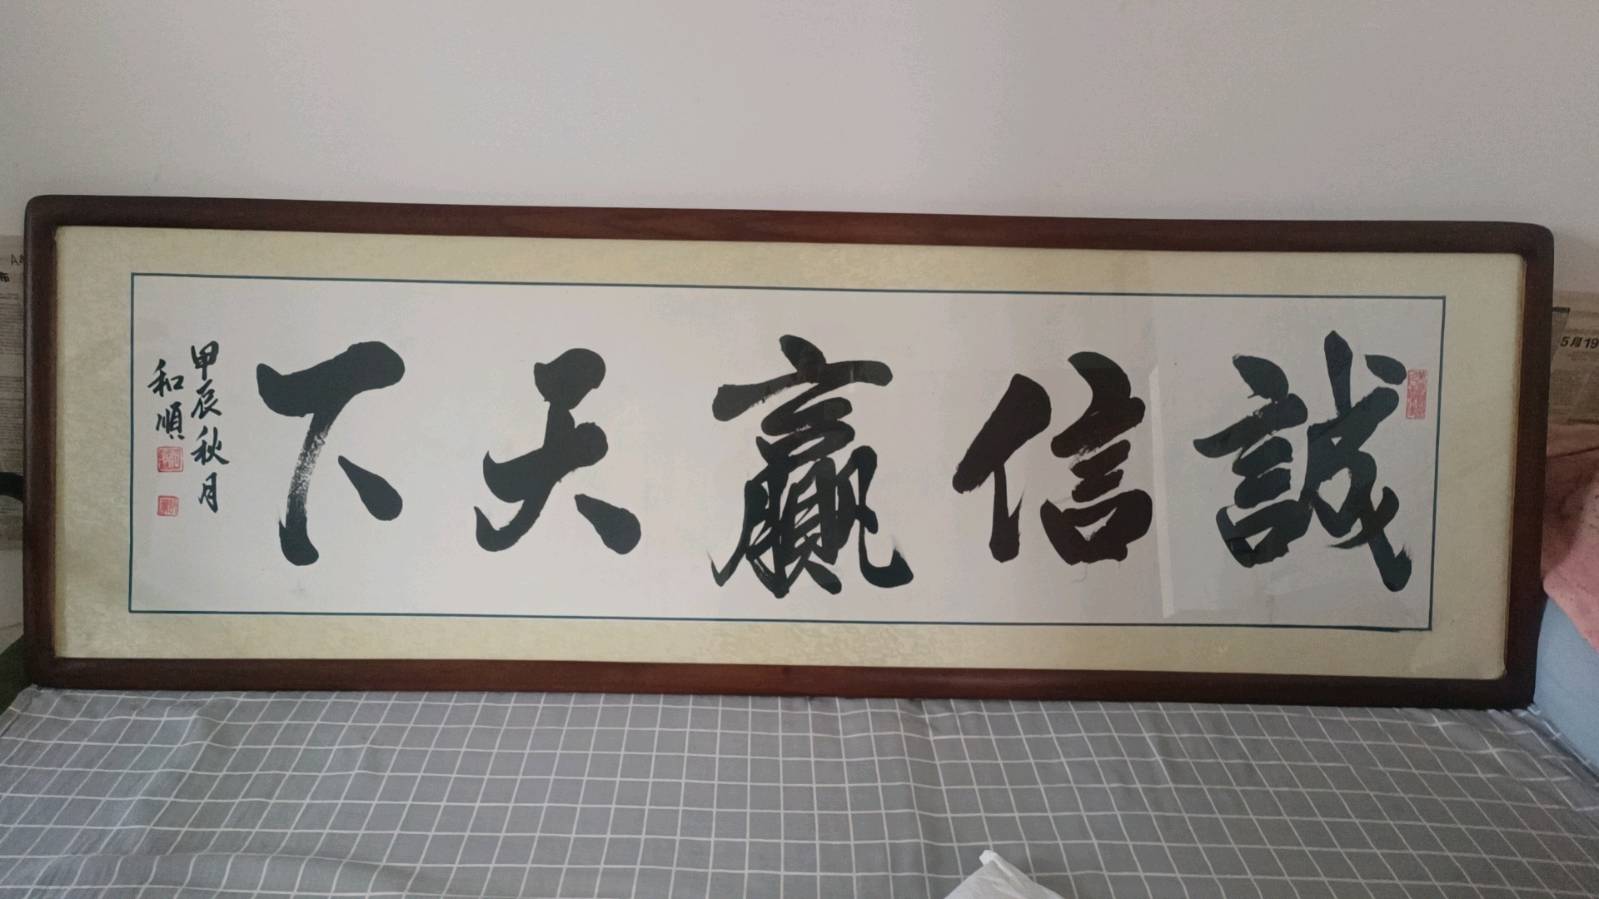 誠信贏天下
甲辰秋月
和順
5月19